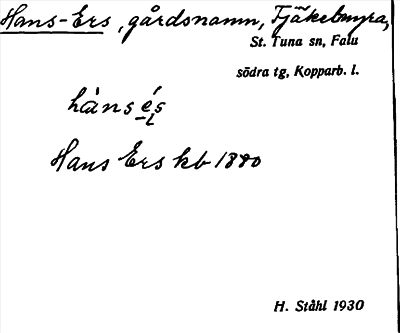 Hans-Ers, gårdsnamn, Tjäkelmyra,
St. Tuna sn, Falu
södra tg, Kopparb. l.
hàns és
Hans Ers kb 1880
H. Ståhl 1930